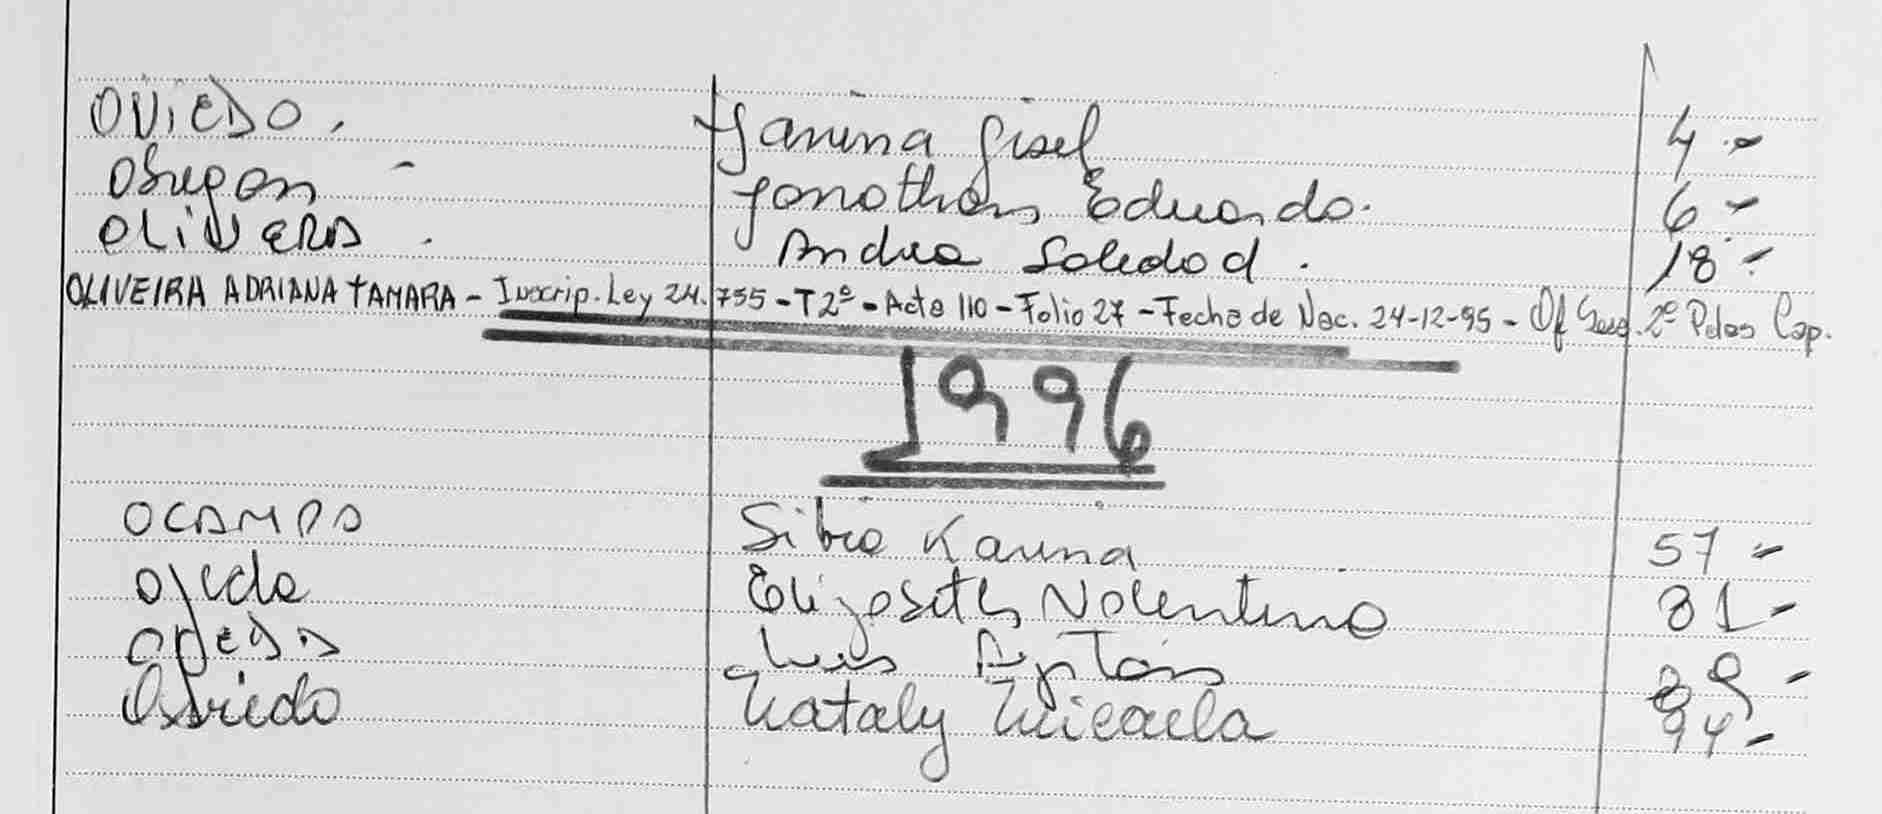 OVIEDO. Yanina Gisel 4 -
Obregon - Jonathan Eduardo. 6 -
OLIVERA . Andrea Soledad. 18 -
OLIVEIRA ADRIANA TAMARA - Inscrip. Ley 24.755 - T 2º - Acta 110 - Folio 27 - Fecha de Nac. 24-12-95 - Of Secc. 2º Pdas Cap.
1996
OCAMPO Silvia Karina 57 -
Ojeda Elizabeth Valentina 81 -
OJEDA Luis 89 -
Oviedo Nataly Micaela 94 -